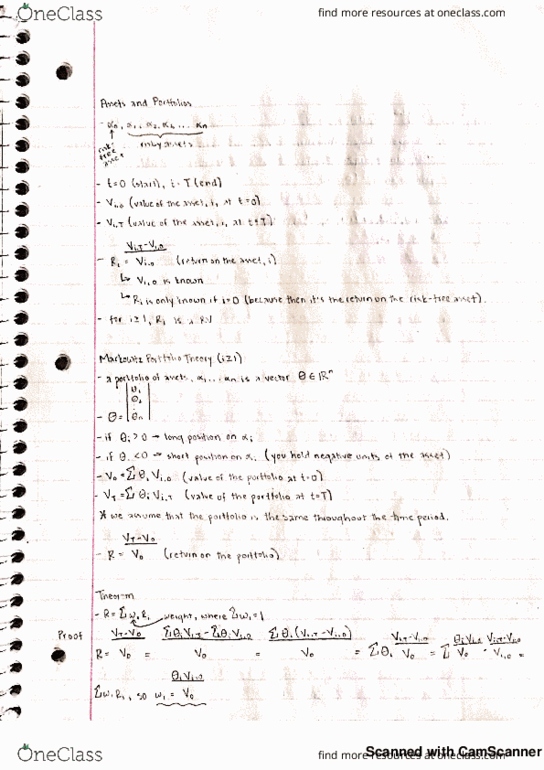 OneClass
find more resources at oneclass.com
Assets and Portfolios
- α₀, α₁, α₂, α₃, ... αn
risk-free asset
risky assets
- t=0 (start), t=T (end)
- Vi,0 (value of the asset, i, at t=0)
- Vi,T (value of the asset, i, at t=T)
Vi,T-Vi,0
- Ri = Vi,0 (return on the asset, i)
↳ Vi,0 is known
↳ Ri is only known if i=0 (because then it's the return on the risk-free asset).
- for i≥1, Ri is a RV
Markowitz Portfolio Theory (i≥1)
- a portfolio of assets, α₁, ... αn is a vector Θ ∈ ℝⁿ
- Θ = |θ₁ θ₂ : θn|
- if θi > 0 → long position on αi
- if θi < 0 → short position on αi (you hold negative units of the asset)
- V₀ = Σ θi Vi,0 (value of the portfolio at t=0)
- VT = Σ θi Vi,T (value of the portfolio at t=T)
* we assume that the portfolio is the same throughout the time period.
VT-V₀
- R = V₀ (return on the portfolio)
Theorem
- R = Σ wi Ri weight, where Σwi=1
Proof
VT-V₀ Σθi Vi,T - Σθi Vi,0 Σθi (Vi,T - Vi,0) Vi,T-Vi,0 θi Vi,0 Vi,T-Vi,0
R = V₀ = V₀ = V₀ = Σ θi V₀ = Σ V₀ · Vi,0 =
θi Vi,0
Σwi Ri, so wi = V₀
OneClass
find more resources at oneclass.com
Scanned with CamScanner